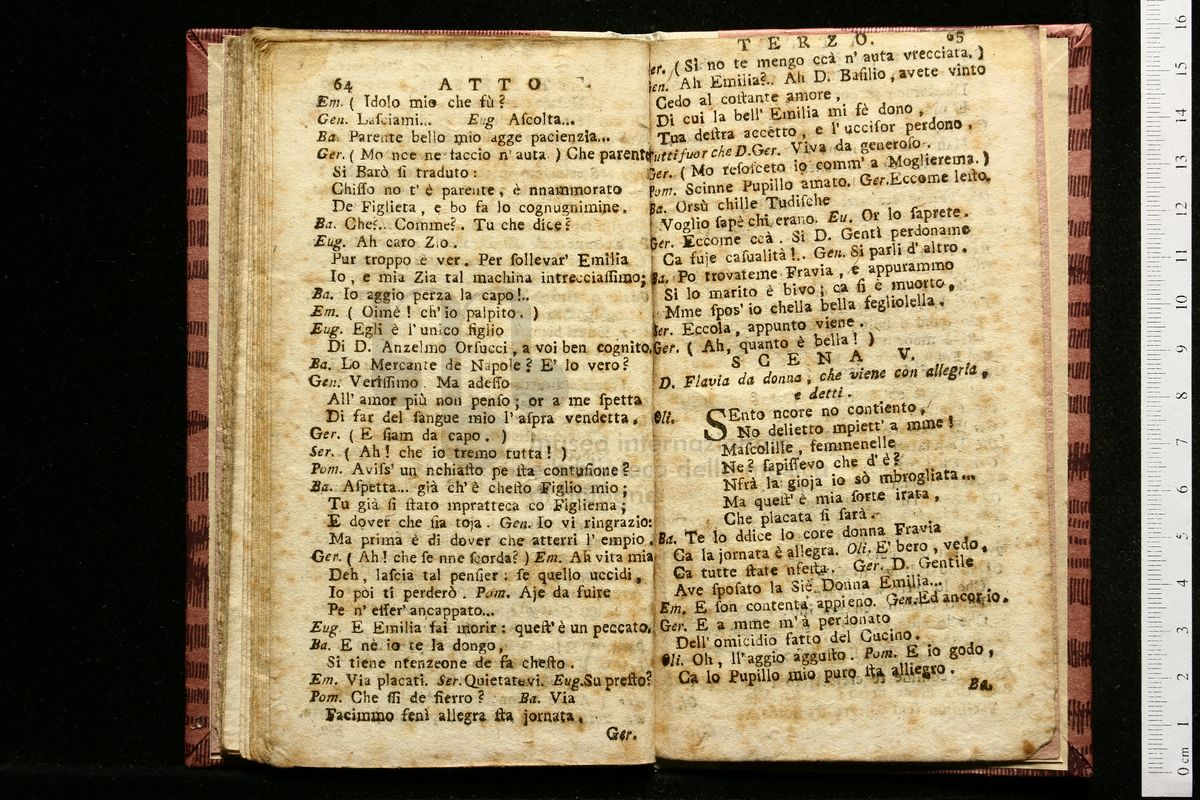 64 ATTO
Em. ( Idolo mio che fù?
Gen. Laſciami... Eug Aſcolta...
Ba. Parente bello mio agge pacienzia...
Ger. ( Mo nce ne faccio n' auta ) Che parente
Si Barò ſi traduto:
Chiſſo no t' è parente, è nnammorato
De Figlieta, e bo fa lo cognugnimine.
Ba. Che?.. Comme?. Tu che dice?
Eug. Ah caro Zio.
Pur troppo è ver. Per ſollevar' Emilia
Io, e mia Zia tal machina intrecciaſſimo;
Ba. Io aggio perza la capo!..
Em. ( Oimè! ch' io palpito. )
Eug. Egli è l' unico figlio
Di D. Anzelmo Orſucci, a voi ben cognito.
Ba. Lo Mercante de Napole? E' lo vero?
Gen. Veriſſimo. Ma adeſſo
All' amor più non penſo; or a me ſpetta
Di far del ſangue mio l' aſpra vendetta.
Ger. ( E ſiam da capo. )
Ser. ( Ah! che io tremo tutta! )
Pom. Aviſs' un nchiaſto pe ſta contuſione?
Ba. Aſpetta... già ch' è cheſto Figlio mio;
Tu già ſi ſtato mpratteca co Figliema;
E dover che ſia toja. Gen. Io vi ringrazio:
Ma prima è di dover che atterri l' empio.
Gen. ( Ah! che ſe nne ſcorda? ) Em. Ah vita mia
Deh, laſcia tal penſier: ſe quello uccidi,
Io poi ti perderò. Pom. Aje da fuire
Pe n' eſſer' ancappato...
Eug. E Emilia fai morir: queſt' è un peccato.
Ba. E nè io te la dongo,
Si tiene ntenzeone de fa cheſto.
Em. Via placati. Ser. Quietatevi. Eug. Su preſto?
Pom. Che ſſi de fierro? Ba. Via
Facimmo feni allegra ſta jornata.
Ger.
TERZO. 65
er. ( Si no te mengo ccà n' auta vrecciata. )
en. Ah Emilia?.. Ah D. Baſilio, avete vinto
Cedo al coſtante amore,
Di cui la bell' Emilia mi fè dono,
Tua deſtra accetto, e l' ucciſor perdono.
utti fuor che D. Ger. Viva da generoſo.
Ger. ( Mo reſoſceto io comm' a Moglierema. )
Pom. Scinne Pupillo amato. Ger. Eccome leſto.
Ba. Orsù chille Tudiſche
Voglio ſapè chi erano. Eu. Or lo ſaprete.
Ger. Eccome ccà. Si D. Gentì perdoname
Ca fuje caſualità!.. Gen. Si parli d' altro.
Ba. Po trovateme Fravia, e appurammo
Si lo marito è bivo; ca ſi è muorto,
Mme ſpos' io chella bella fegliolella.
Ser. Eccola, appunto viene.
Ger. ( Ah, quanto è bella! )
SCENA V.
D. Flavia da donna, che viene con allegria,
e detti.
Oli. SEnto ncore no contiento,
No delietto mpiett' a mme!
Maſcolille, femmenelle
Ne? ſapiſſevo che d' è?
Nfrà la gioja io sò mbrogliata...
Ma queſt' è mia ſorte irata,
Che placata ſi ſarà.
Ba. Te lo ddice lo core donna Fravia
Ca la jornata è allegra. Oli. E' bero, vedo,
Ca tutte ſtate nfeſta. Ger. D. Gentile
Ave ſpoſato la Siè Donna Emilia...
Em. E ſon contenta appieno. Gen. Ed ancor io.
Ger. E a mme m' à perdonato
Dell' omicidio fatto del Cucino.
Oli. Oh, ll' aggio agguſto. Pom. E io godo,
Ca lo Pupillo mio puro ſta alliegro.
Ba.